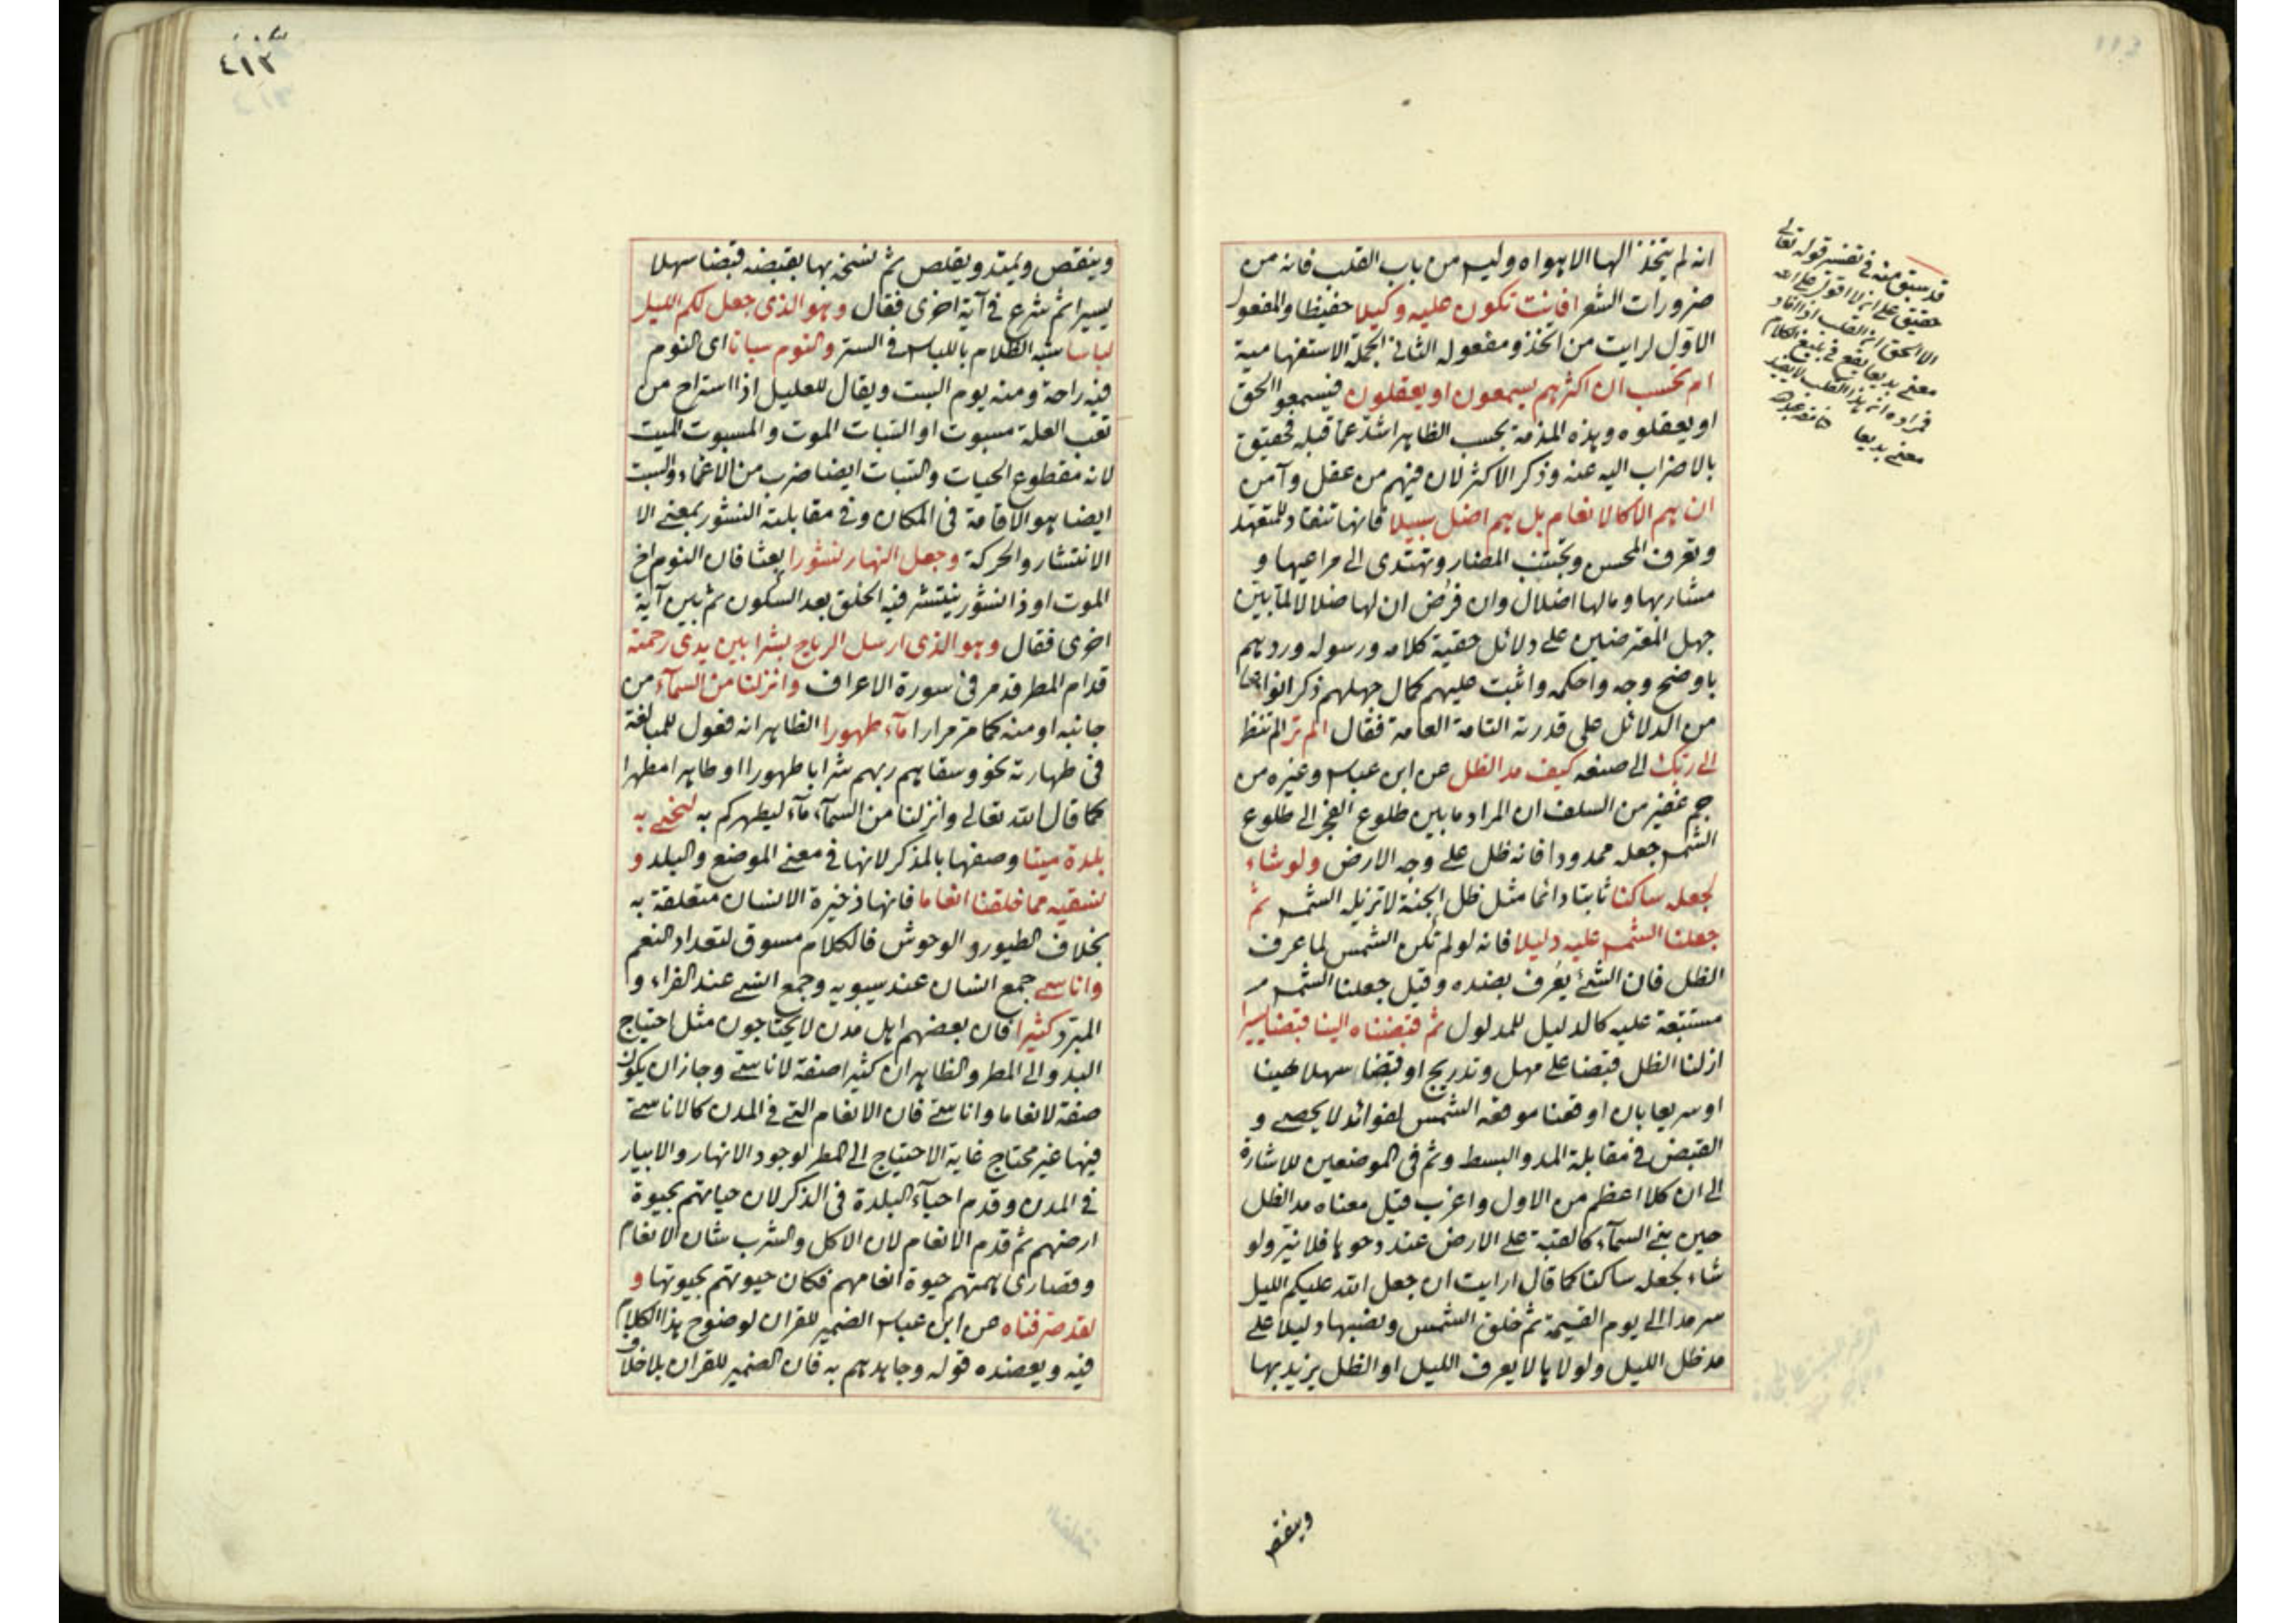 انه لم يتخذ الها الا هواه وليس من باب القلب فانه من
ضرورات الشعر افانت تكون عليه وكيلا حفيظا والمفعول
الاول لرايت من اتخذ ومفعوله الثاني الجملة الاستفهامية
ام تحسب ان اكثرهم يسمعون او يعقلون فيسمعوا الحق
او يعقلوه وهذه المذمة بحسب الظاهر اشد عما قبله فحقيق
بالاضراب اليه عنه وذكر الاكثر لان فيهم من عقل وآمن
ان هم الا كالانعام بل هم اضل سبيلا فانها تنقاد للمتعهد
وتعرف المحسن وتجتنب المضار وتهتدى الى مراعيها و
مشاربها وما لها اضلال وان فرض ان لها ضلالا لما بين
جهل المعترضين على دلائل حقية كلامه ورسوله وردهم
باوضح وجه واحكمه واثبت عليهم كمال جهلهم ذكر انواعا
من الدلائل على قدرته التامة العامة فقال الم تر الم تنظر
الى ربك الى صنعه كيف مد الظل عن ابن عباس وغيره من
جم غفير من السلف ان المراد ما بين طلوع الفجر الى طلوع
الشمس جعله ممدودا فانه ظل على وجه الارض ولو شاء
لجعله ساكنا ثابتا دائما مثل ظل الجنة لا تزيله الشمس ثم
جعلنا الشمس عليه دليلا فانه لو لم تكن الشمس لما عرف
الظل فان الشئ يعرف بضده وقيل جعلنا الشمس
مستتبعة عليه كالدليل للمدلول ثم قبضناه الينا قبضا يسيرا
ازلنا الظل قبضا على مهل وتدريج او قبضا سهلا هينا
او سريعا بان اوقعنا موقعه الشمس لفوائد لا يحصى و
القبض فى مقابلة المد والبسط وثم فى الموضعين للاشارة
الى ان كلا اعظم من الاول واغرب قيل معناه مد الظل
حين بنى السماء كالقبة على الارض عند دحوها فلا نير ولو
شاء لجعله ساكنا كما قال ارايت ان جعل الله عليكم الليل
سرمدا الى يوم القيمة ثم خلق الشمس ونصبها دليلا على
مد ظل الليل ولولاها لا يعرف الليل او الظل يزيد بها
قد سبق منه فى تفسير قوله تعالى
حقيق على ان لا اقول على الله
الا الحق ان القلب اذا افاد
معنى بديعا يقع فى بليغ الكلام
فمراده ان هذا القلب لا يفيد
معنى بديعا
وينقص
٤١٣
وينقص ويمتد ويقلص ثم نسخه بها بقبضه قبضا سهلا
يسيرا ثم شرع فى آية اخرى فقال وهو الذى جعل لكم الليل
لباسا شبه الظلام باللباس فى الستر والنوم سباتا اى النوم
فيه راحة ومنه يوم السبت ويقال للعليل اذا استراح من
تعب العلة مسبوت او السبات الموت والمسبوت الميت
لانه مقطوع الحيات والسبات ايضا ضرب من الاغماء والسبت
ايضا هو الاقامة فى المكان وفى مقابلته النشور بمعنى الا
الانتشار والحركة وجعل النهار نشورا بعثا فان النوم اخ
الموت او ذا نشور ينتشر فيه الخلق بعد السكون ثم بين آية
اخرى فقال وهو الذى ارسل الرياح بشرا بين يدى رحمته
قدام المطر قد مر فى سورة الاعراف وانزلنا من السماء من
جانبه او منه كما مر مرارا ماء طهورا الظاهر انه فعول للمبالغة
فى طهارته نحو وسقاهم ربهم شرابا طهورا او طاهرا مطهرا
كما قال الله تعالى وانزلنا من السماء ماء ليطهركم به لنحيى به
بلدة ميتا وصفها بالمذكر لانها فى معنى الموضع والبلد و
نسقيه مما خلقنا انعاما فانها ذخيرة الانسان متعلقة به
بخلاف الطيور والوحوش فالكلام مسوق لتعداد النعم
واناسى جمع انسان عند سيبويه وجمع انسى عند الفراء و
المبرد كثيرا فان بعضهم اهل مدن لا يحتاجون مثل احتياج
البدو الى المطر والظاهر ان كثيرا صفة لاناسى وجاز ان يكون
صفة لانعاما واناسى فان الانعام التى فى المدن كالاناسى
فيها غير محتاج غاية الاحتياج الى المطر لوجود الانهار والابيار
فى المدن وقدم احياء البلدة فى الذكر لان حياتهم بحيوة
ارضهم ثم قدم الانعام لان الاكل والشرب شان الانعام
وقصارى همتهم حيوة انعامهم فكان حيوتهم بحيوتها و
لقد صرفناه عن ابن عباس الضمير للقران لوضوح هذا الكلام
فيه ويعضده قوله وجاهدهم به فان الضمير للقران بلا خلاف